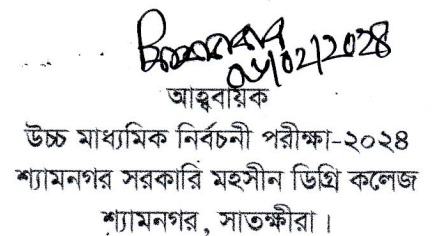 ০৮/০২/২০২৪
আহ্বায়ক
উচ্চ মাধ্যমিক নির্বচনী পরীক্ষা-২০২৪
শ্যামনগর সরকারি মহসীন ডিগ্রি কলেজ
শ্যামনগর, সাতক্ষীরা।